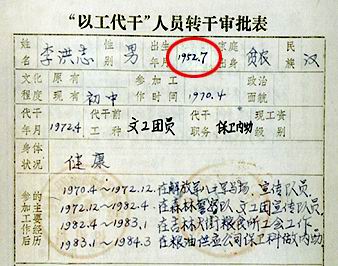 “以工代干”人员转干审批表
姓名 李洪志 性别 男 出生年月 1952.7 家庭出身 贫农 民族 汉
文化程度 原有 现有 初中 参加工作时间 1970.4 政治面貌
代干年月 1972.4 代干前工种 文工团员 代干职务 保卫内勤 现工资级别
身体状况 健康
参加工作后的主要经历
1970.4～1972.12.在解放军 军马场 宣传队员.
1972.12～1982.4 在森林警 队文工团宣传队员.
1982.4～1983.1 在吉林大街粮食所工会工作
1983.1～1984.3 在粮油供应公司保卫科做内勤